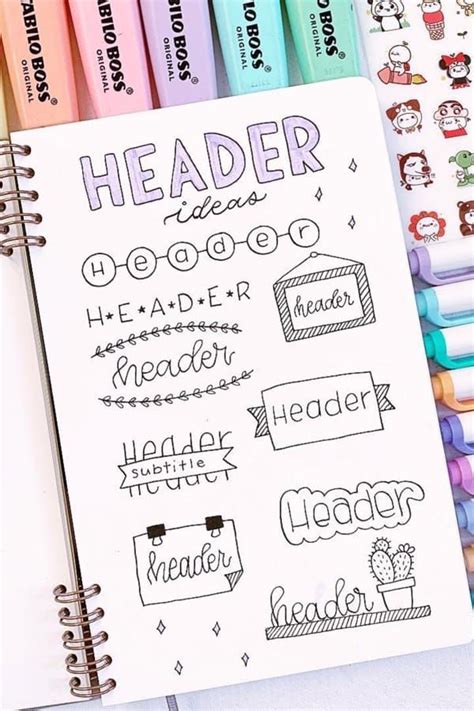 STABILO BOSS
ORIGINAL
STABILO BOSS
ORIGINAL
STABILO BOSS
ORIGINAL
STABILO BOSS
ORIGINAL
STABILO BOSS
ORIGINAL
HEADER
ideas
Header
H*E*A*D*E*R
header
header
Header
Header
subtitle
Header
header
header